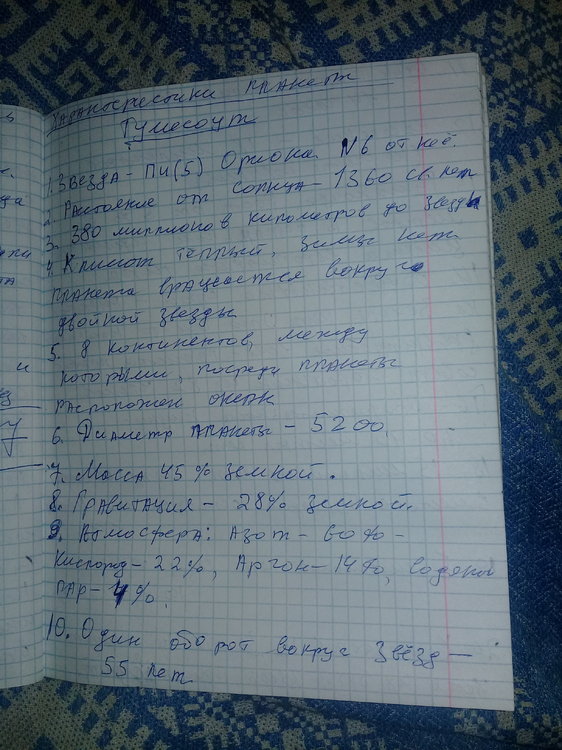 Характеристики планет
Тумесоут
1. Звезда - Пи(5) Ориона. N6 от неё.
2. Растояние от солнца - 1360 св. лет
3. 380 миллионов километров до звезды
4. Климат тёплый, зимы нет.
планета вращается вокруг
двойной звезды
5. 8 континентов, между
которыми, посреди планеты
расположен океан
6. Диаметр планеты - 5200.
7. Масса 45% земной.
8. Гравитация - 28% земной.
9. Атмосфера: Азот - 60% -
Кислород - 22%, Аргон - 14%, водяной
пар - 4%.
10. Один оборот вокруг звёзд -
55 лет